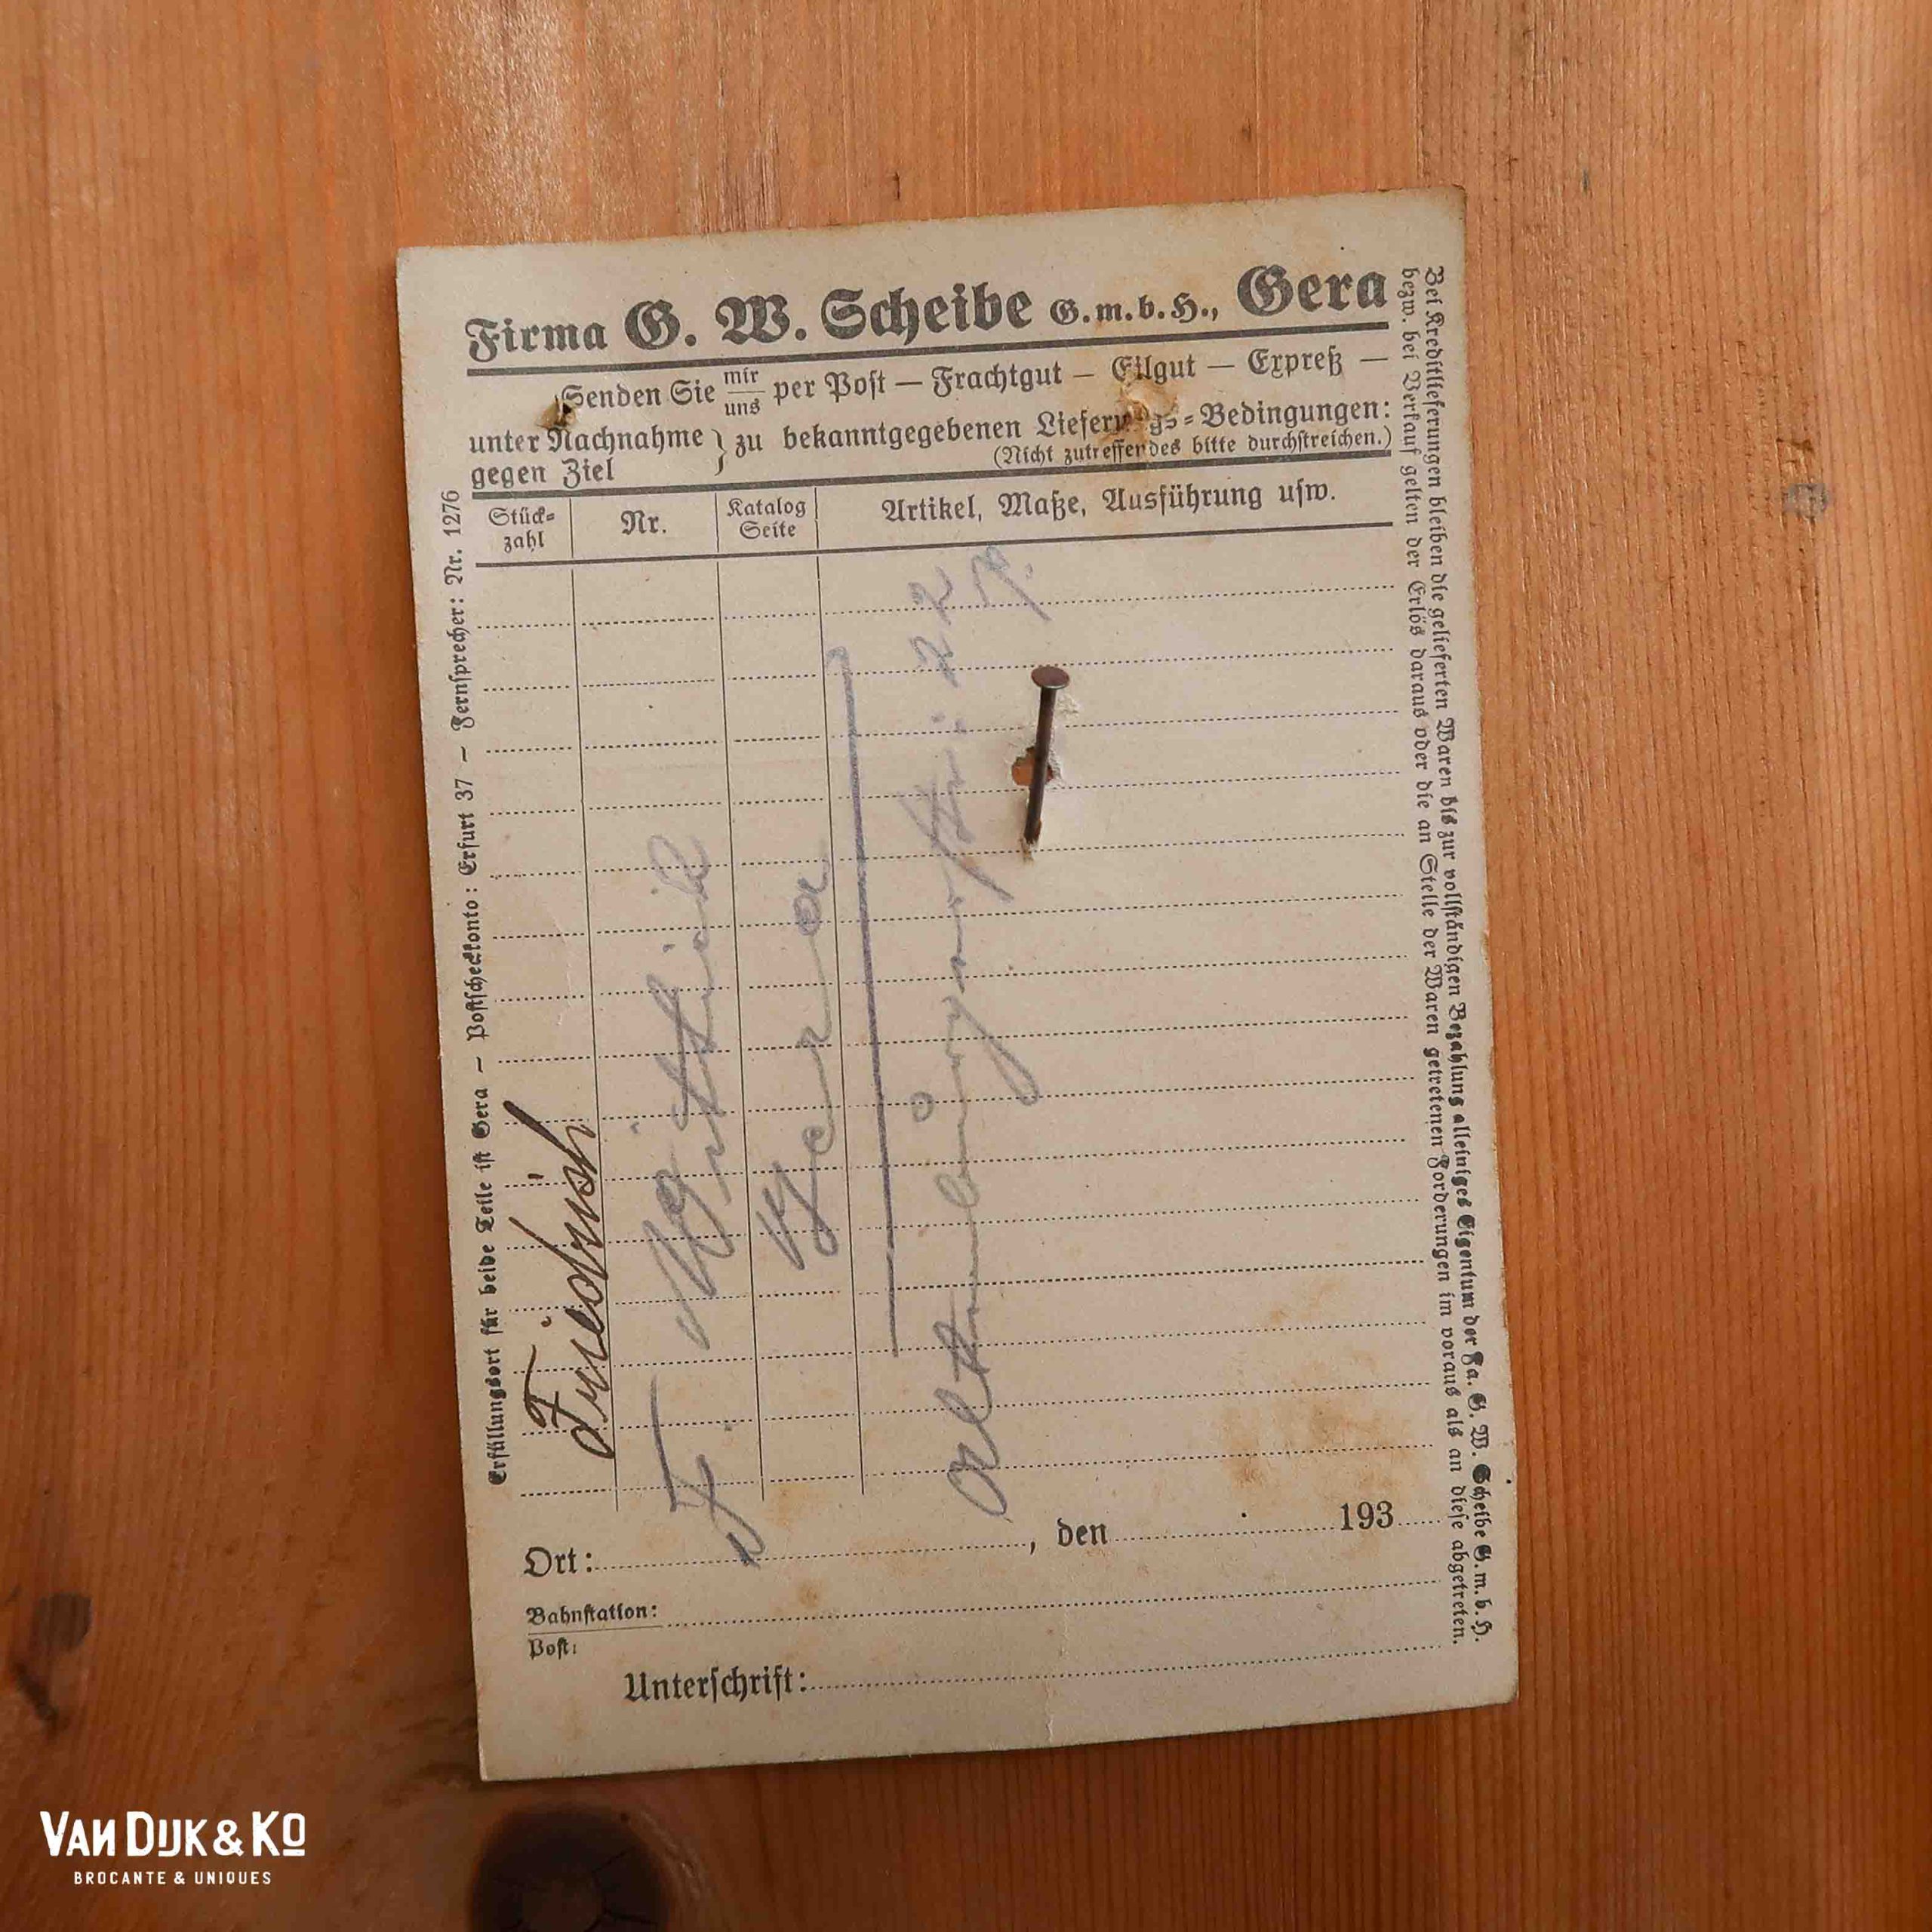 Firma G. W. Scheibe G.m.b.H., Gera
Senden Sie mir/uns per Post — Frachtgut — Eilgut — Expreß —
unter Nachnahme
gegen Ziel
zu bekanntgegebenen Lieferungs=Bedingungen:
(Nicht zutreffendes bitte durchstreichen.)
Stück=
zahl
Nr.
Katalog
Seite
Artikel, Maße, Ausführung usw.
Friedrich
F.
Gera
Ort: , den 193
Bahnstation:
Post:
Unterschrift:
Erfüllungsort für beide Teile ist Gera — Postscheckkonto: Erfurt 37 — Fernsprecher: Nr. 1276
Bei Kreditlieferungen bleiben die gelieferten Waren bis zur vollständigen Bezahlung alleiniges Eigentum der Fa. G. W. Scheibe G.m.b.H.
bezw. bei Verkauf gelten der Erlös daraus oder die an Stelle der Waren getretenen Forderungen im voraus als an diese abgetreten.
VAN DIJK & KO
BROCANTE & UNIQUES